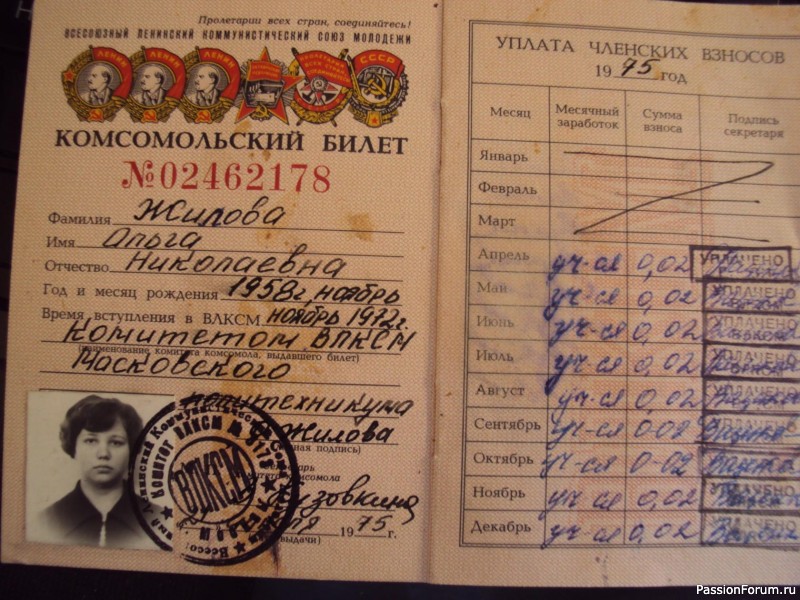 Пролетарии всех стран, соединяйтесь!
ВСЕСОЮЗНЫЙ ЛЕНИНСКИЙ КОММУНИСТИЧЕСКИЙ СОЮЗ МОЛОДЕЖИ
ЛЕНИН ЛЕНИН ЛЕНИН СССР
КОМСОМОЛЬСКИЙ БИЛЕТ
№02462178
Фамилия Жилова
Имя Ольга
Отчество Николаевна
Год и месяц рождения 1958г, ноябрь
Время вступления в ВЛКСМ ноябрь 1972г.
Комитетом ВЛКСМ
(наименование комитета комсомола, выдавшего билет)
Московского
политехникума
Жилова
подпись)
Секретарь
комитета комсомола
1975 г.
выдачи)
ВЛКСМ
УПЛАТА ЧЛЕНСКИХ ВЗНОСОВ
1975 год
Месяц Месячный заработок Сумма взноса Подпись секретаря
Январь
Февраль
Март
Апрель уч-ся 0,02 УПЛАЧЕНО
Май уч-ся 0,02 УПЛАЧЕНО
Июнь уч-ся 0,02 УПЛАЧЕНО
Июль уч-ся 0,02 УПЛАЧЕНО
Август уч-ся 0,02 УПЛАЧЕНО
Сентябрь уч-ся 0-02 УПЛАЧЕНО
Октябрь уч-ся 0-02 УПЛАЧЕНО
Ноябрь уч-ся 0,02 УПЛАЧЕНО
Декабрь уч-ся 0,02 УПЛАЧЕНО
PassionForum.ru